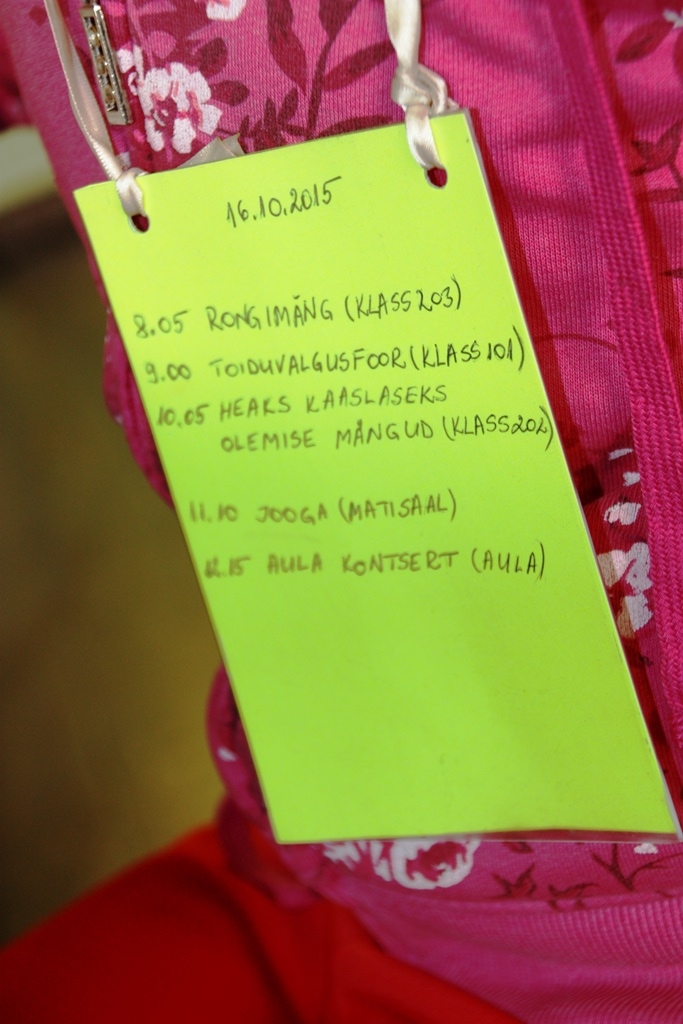 16.10.2015
8.05 RONGIMÄNG (KLASS 203)
9.00 TOIDUVALGUSFOOR (KLASS 101)
10.05 HEAKS KAASLASEKS
OLEMISE MÄNGUD (KLASS 202)
11.10 JOOGA (MATISAAL)
12.15 AULA KONTSERT (AULA)